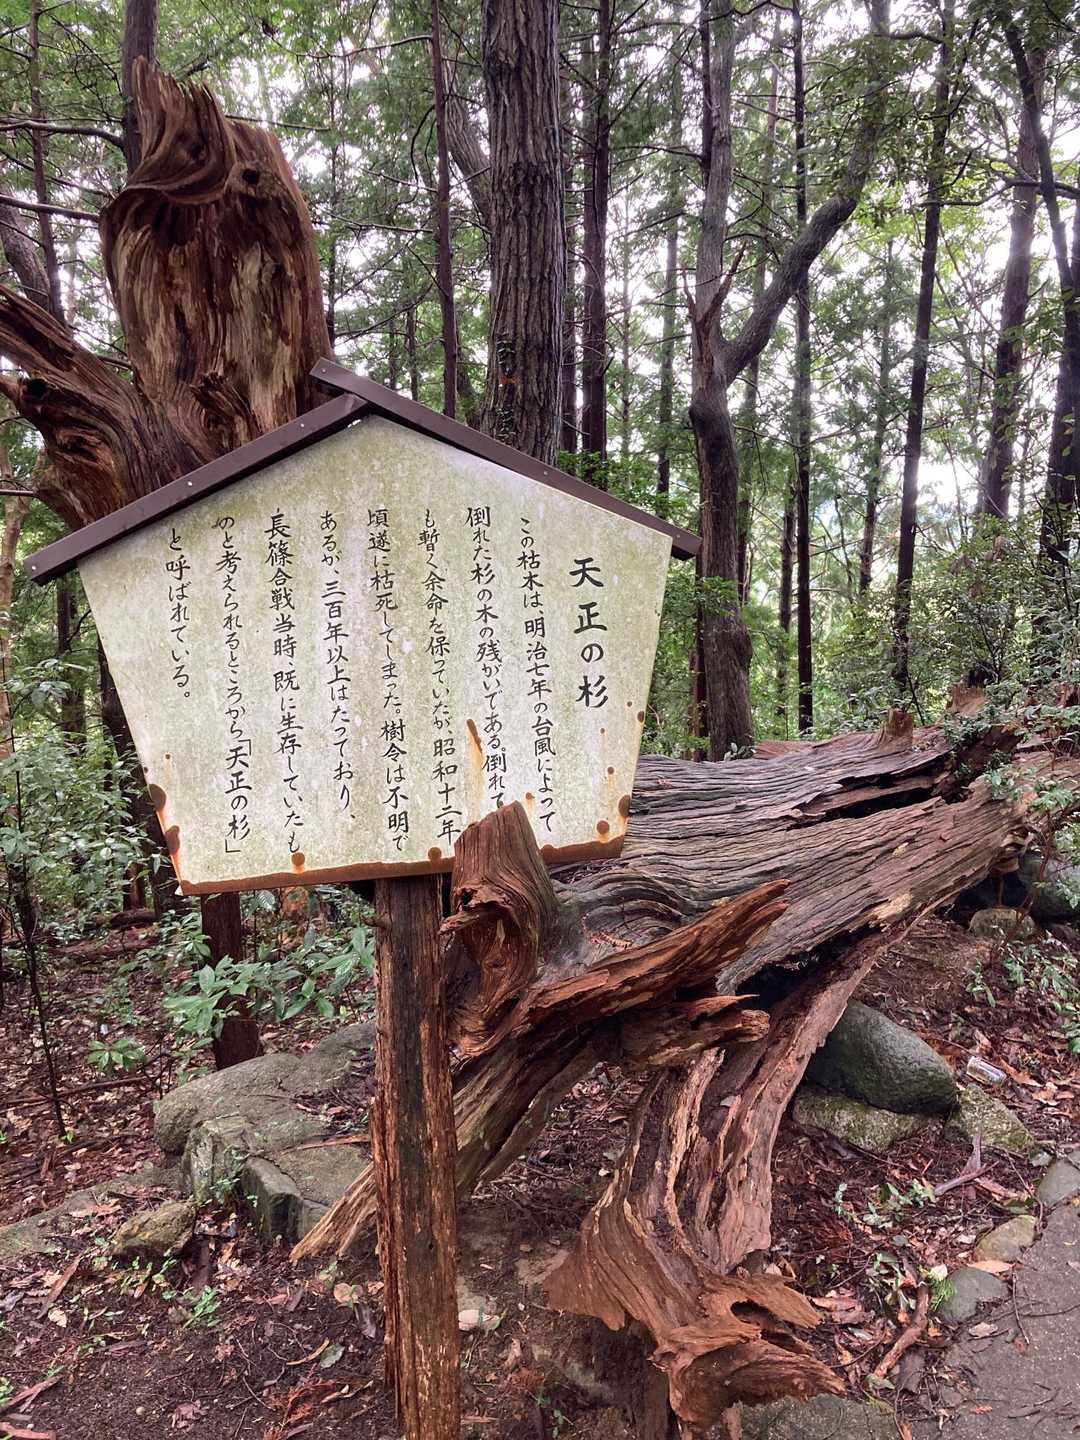 天正の杉
この枯木は、明治七年の台風によって
倒れた杉の木の残がいである。倒れて
も暫く余命を保っていたが、昭和十二年
頃遂に枯死してしまった。樹令は不明で
あるが、三百年以上はたっており、
長篠合戦当時、既に生存していたも
のと考えられるところから「天正の杉」
と呼ばれている。